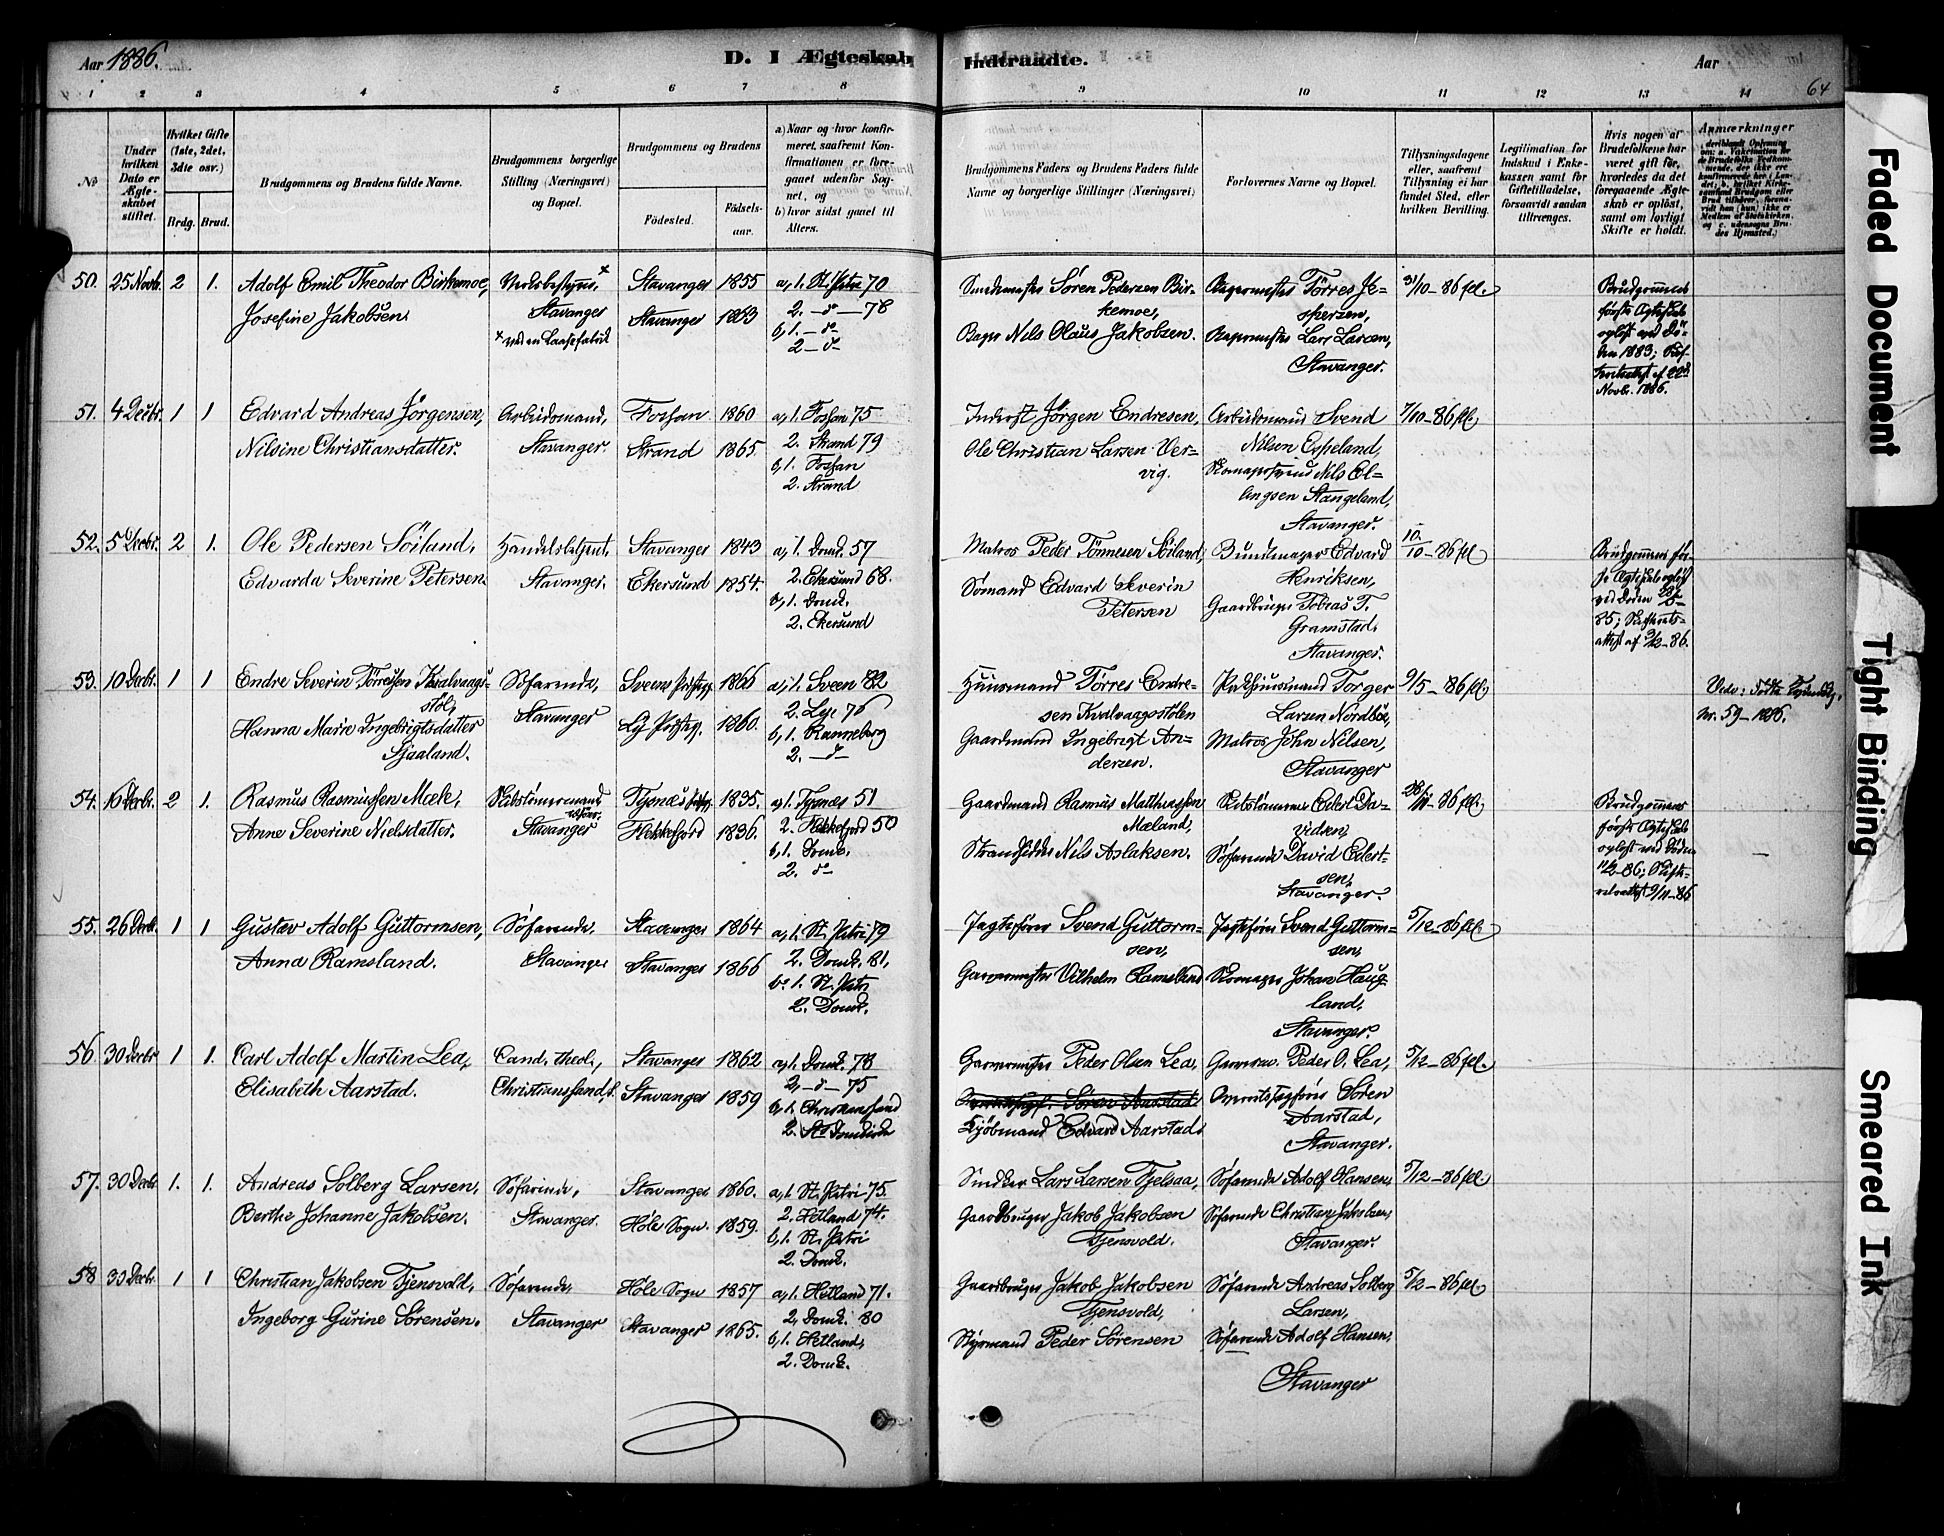 Aar 1886.
D. I Ægteskab Indtraadte.
Aar
64
1 2 3 4 5 6 7 8 9 10 11 12 13 14
No
Under hvilken Dato er Ægteskabet stiftet.
Hvilket Gifte (1ste, 2det, 3die osv.)
Brdg. Brud.
Brudgommens og Brudens fulde Navne.
Brudgommens borgerlige Stilling (Næringsvei) og Bopæl.
Brudgommens og Brudens
Födested.
Födselsaar.
a) Naar og hvor konfirmeret, saafremt Konfirmationen er foregaaet udenfor Sognet, og
b) hvor sidst gaaet til Alters.
Brudgommens Faders og Brudens Faders fulde Navne og borgerlige Stillinger (Næringsvei)
Forlovernes Navne og Bopæl.
Tillysningsdagene eller, saafremt Tillysning ei har fundet Sted, efter hvilken Bevilling.
Legitimation for Indskud i Enkekassen samt for Giftetilladelse, forsaavidt saadan tiltrænges.
Hvis nogen af Brudefolkene har været gift før, hvorledes da det foregaaende Ægteskab er oplöst, samt om lovligt Skifte er holdt.
Anmærkninger
50. 25 Novb. 2 1. Adolf Emil Theodor Birkemoe, Stavanger 1855 a, 1. St. Petri 70
Josefine Jakobsen Stavanger Stavanger 1863 2. — d — 78
b, 1. — d —
2 — d —
Søren Pedersen Birkemoe,
Nils Olaus Jakobsen.
Tørres Jespersen,
Lars Larsen,
Stavanger.
31/10 - 86 fl.
Brudgommens første Ægteskab opløst ved Døden 1883; Skifteretsattest af 22d Novb. 1886.
51. 4 Decbr. 1 1 Edvard Andreas Jørgensen, Arbeidsmand, Fossan 1860 a, 1. Fossan 75
Nilsine Christiansdatter. Stavanger. Strand 1865. 2. Strand 79
b, 1. Fossan
2. Strand
Inderst Jørgen Endresen,
Ole Christian Larsen Vervig.
Arbeidsmand Svend
Nilsen Espeland,
Stangeland,
Stavanger.
7/10 - 86 fl
52. 5 Decbr. 2 1. Ole Pedersen Söiland, Handelsbetjent, Stavanger 1843 a, 1. Domk. 57
Edvarda Severine Petersen. Stavanger. Ekersund 1854. 2. Ekersund 68.
b, 1. Domk.
2. Ekersund
Matros Peder Tönnesen Söiland,
Sömand Edvard Severin
Petersen
Bundtmager Edvard
Henriksen,
Gaardbruger Tobias T.
Gramstad.
Stavanger.
10/10 - 86 fl
Brudgommens første Ægteskab opløst ved Døden
85; Skifteretsattest af 3/12 - 86.
53. 10 Decbr. 1 1 Endre Severin Tørressen Kvalvaagsstøl, Söfarende, Sveens Præstegj. 1866 a, 1. Sveen 82
Hanna Marie Ingebrigtsdatter Stavanger Lye Præstegj. 1860. 2. Lye 76
Sjaaland. b, 1. Ranneberg
2. — d —
Huusmand Tørres Endresen Kvalvaagsstølen
Gaardmand Ingebrigt Andersen.
Pakhuusmand Torger
Larsen Nordbøe,
Matros John Nilsen,
Stavanger
9/5 - 86 fl,
Nr. 59 - 1886.
54. 16 Decbr. 2 1. Rasmus Rasmussen Mæle, Skibstömmermand Tysnæs 1835. a, 1. Tysnæs 51
Anne Severine Nielsdatter. Stavanger Flekkefjord 1836. 2. Flekkefjord 50
b, 1. Domk.
2. d —
Gaardmand Rasmus Matthiassen
Mæland,
Strandsidder Nils Aslaksen.
Skibstömmerm. Eilert Davidsen,
Söfarende David Eilertsen,
Stavanger.
28/11 - 86 fl.
Brudgommens første Ægteskab opløst ved Døden
11/2 - 86; Skifteretsattest 9/11 - 86
55. 26 Decb. 1 1 Gustav Adolf Guttormsen, Söfarende, Stavanger 1864 a, 1. St. Petri 79
Anna Ramsland. Stavanger Stavanger 1866 2. Domk. 81,
b, 1. St. Petri
2. Domk.
Jagtefører Svend Guttormsen,
Garvermester Vilhelm Ramsland
Jagtefører Svend Guttormsen,
Skomager Johan Haugland,
Stavanger.
5/12 - 86 fl
56. 30 Decbr 1 1. Carl Adolf Martin Lea, Cand. theol., Stavanger 1862 a, 1. Domk. 78
Elisabeth Aarstad. Christianssand S. Stavanger 1859 2, — d — 75
b, 1. Christianssand
2. St. Domkirke
Garvermester Peder Olsen Lea,
Søren Aarstad
Kjöbmand Edvard Aarstad.
Garverm. Peder O. Lea,
Søren
Aarstad,
Stavanger.
5/12 - 86 fl.
57. 30 Decbr 1. 1. Andreas Solberg Larsen, Söfarende, Stavanger 1860. a, 1. St. Petri 75.
Berthe Johanne Jakobsen. Stavanger. Höle Sogn. 1859. 2. Hetland 74.
b, 1. St. Petri
2. Domk.
Snedker Lars Larsen Fjelsaa,
Gaardbruger Jakob Jakobsen
Tjensvold.
Söfarende Adolf Hansen,
Söfarende Christian Jakobsen,
Stavanger.
5/12 - 86 fl.
58 30 Decbr. 1 1 Christian Jakobsen Tjensvold, Söfarende, Höle Sogn 1857 a, 1. Hetland 71.
Ingeborg Gurine Sörensen. Stavanger Stavanger 1865. 2, Domk. 80
b, 1. Hetland,
2. Domk.
Gaardbruger Jakob Jakobsen
Tjensvold,
Styrmand Peder Sörensen
Söfarende Andreas Solberg
Larsen,
Söfarende Adolf Hansen,
Stavanger
5/12 - 86 fl
Faded Document
Tight Binding
Smeared Ink